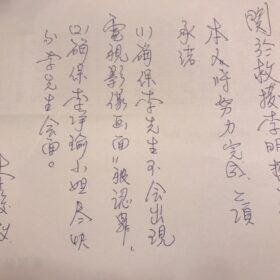 關於救援李明哲
本人將努力完成二項
承諾
(1)確保李先生不会出現
電視影像画面"被認罪"
(2)確保李淨瑜小姐尽快
与李先生会面。
李俊敏